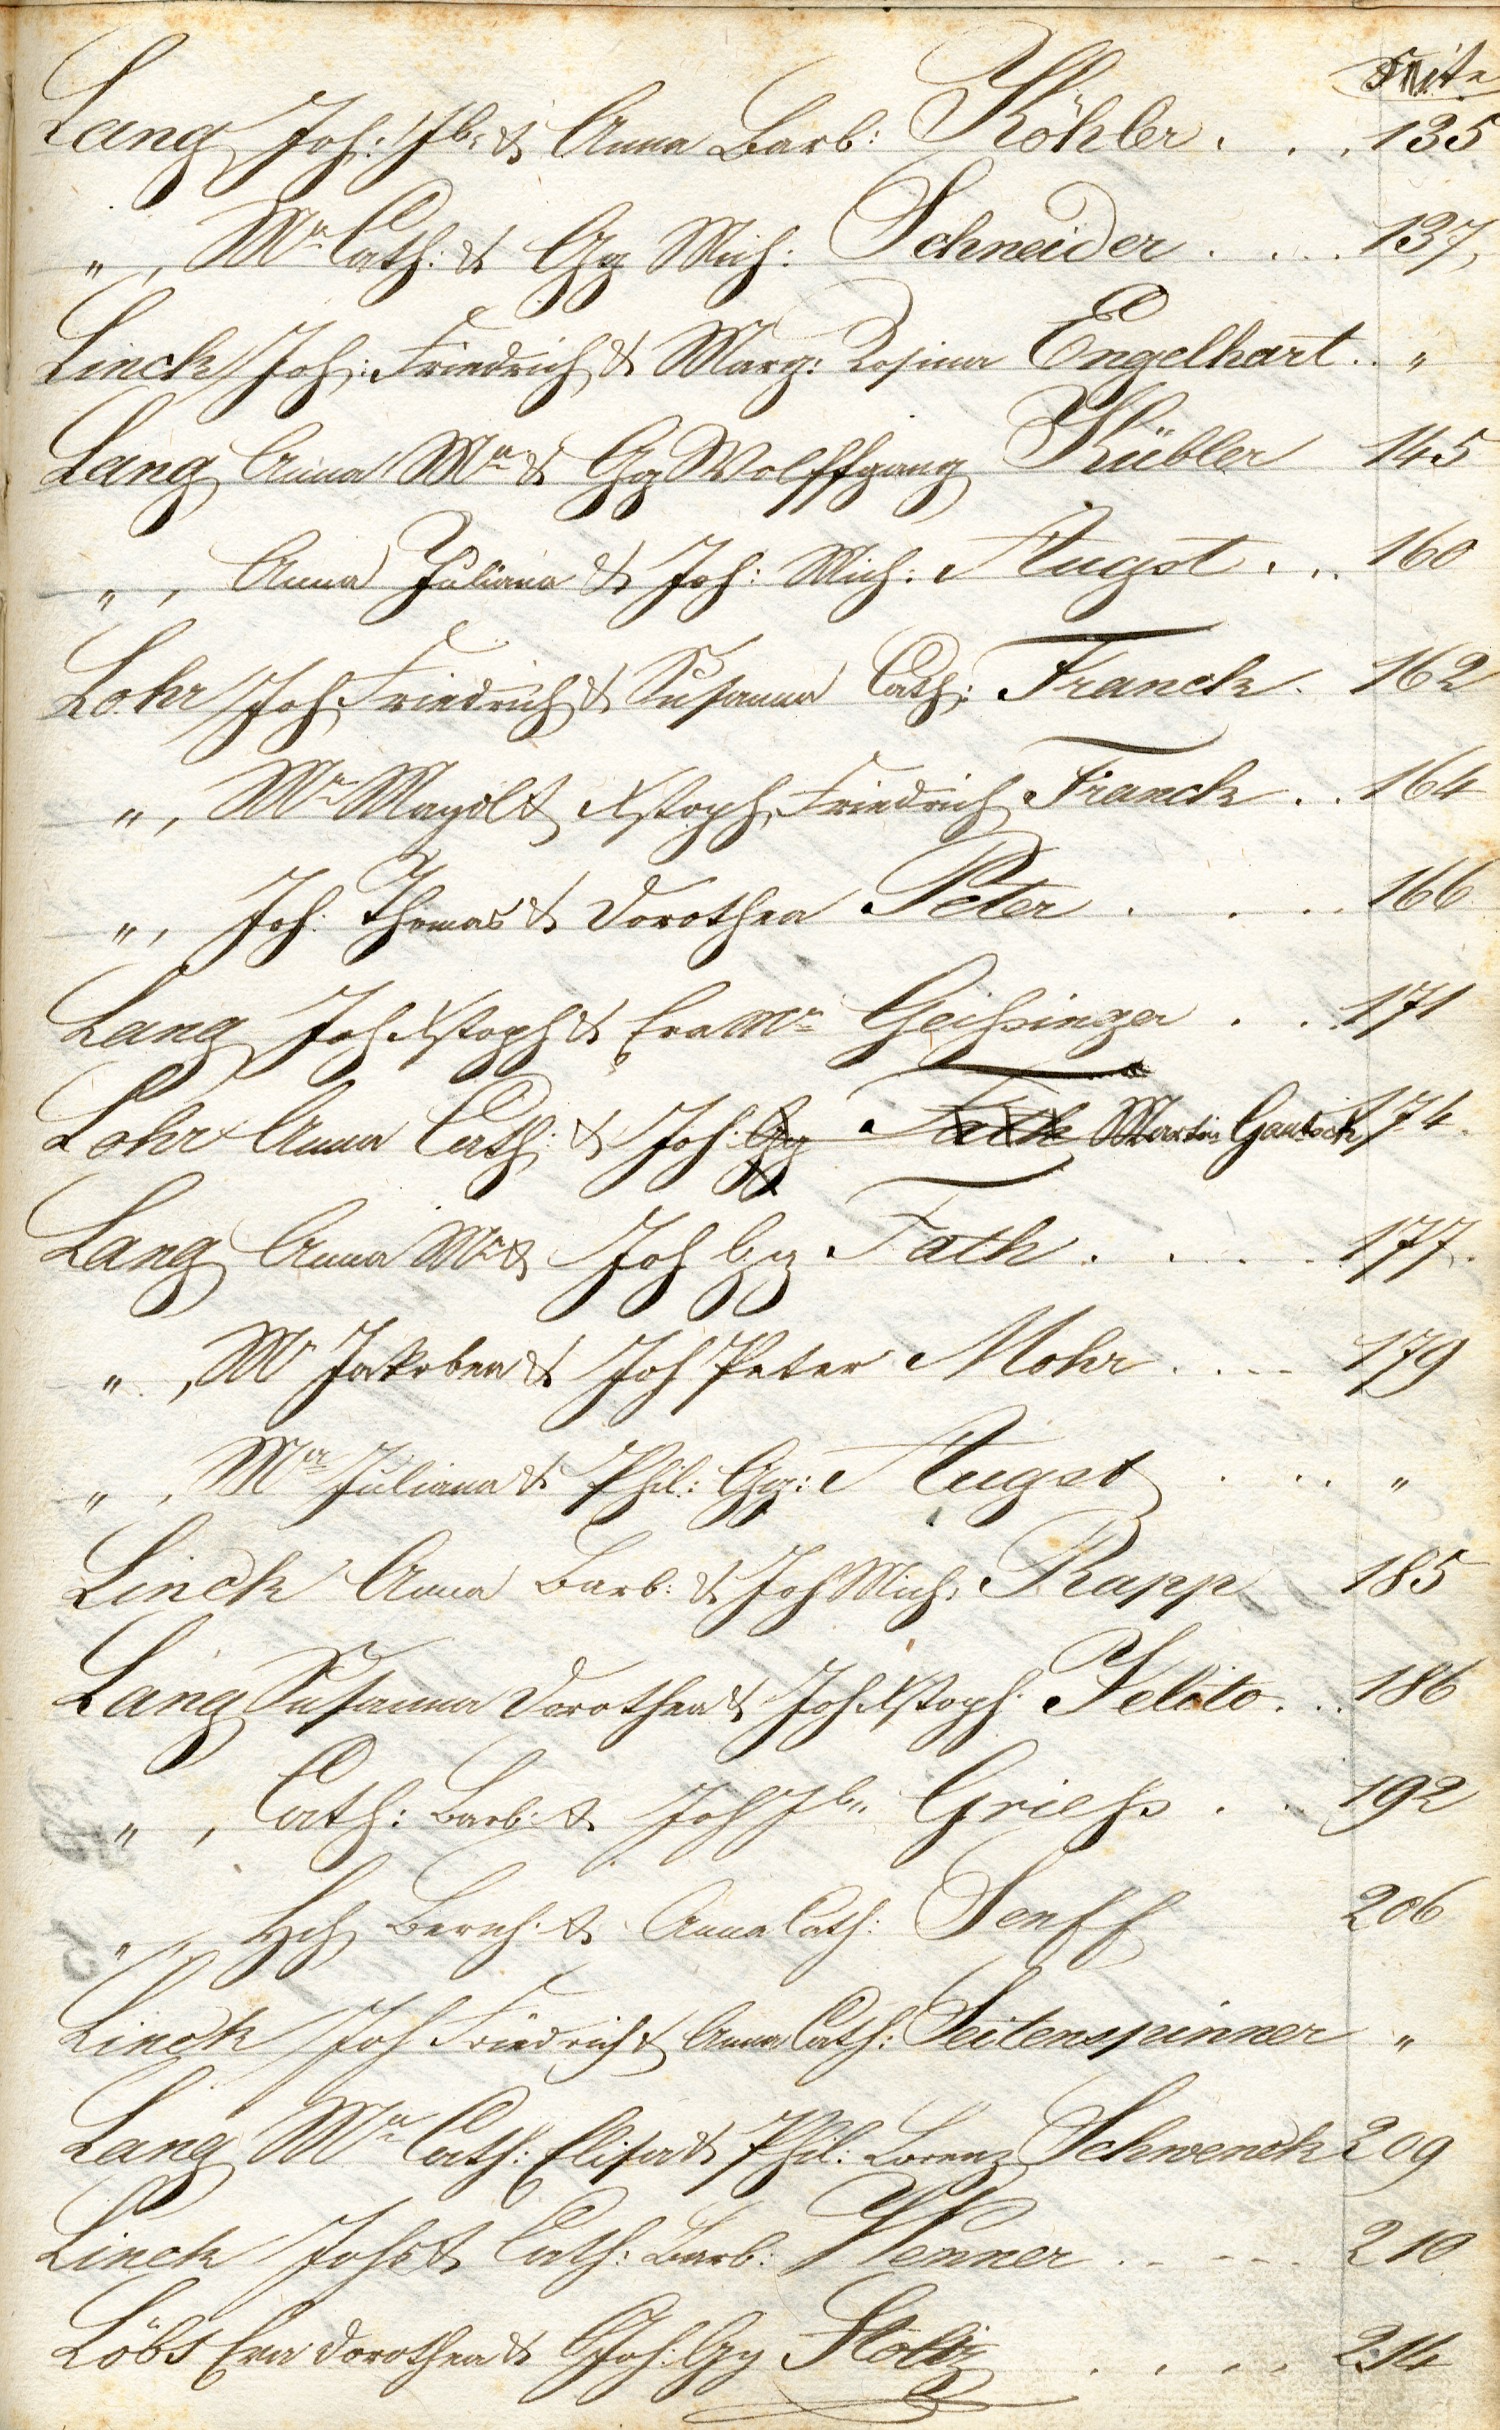 Seite
Lang Joh: Jb: & Anna Barb: Köhler . . . 135
" , Mª Cath: & Gg Mich: Schneider . . . . 137,
Linck Joh: Friedrich & Marg: Rosina Engelhart . . "
Lang Anna Mª & Gg Wolffgang Kübler 145
" , Anna Juliana & Joh: Mich: Augst . . . 160
Lohr Joh Friedrich & Susanna Cath: Franck . 162
" , Mª Magdl & Xstoph Friedrich Franck . . 164
" , Joh: Thomas & Dorothea Peter . . . . . 166
Lang Joh Xstoph & Eva Mª Geißinger . . . 171
Lohr Anna Cath: & Joh: Gg Fath Martin Gautsch 174.
Lang Anna Mª & Joh Gg Fath . . . . . 177.
" , Mª Jakobea & Joh Peter Mohr . . . . 179
" , Mª Juliana & Phil: Gg: Augst . . . "
Linck Anna Barb: & Joh Mich: Rapp 185
Lang Susanna Dorothea & Joh Xstoph: . . . 186
" , Cath: Barb: & Joh Jb" Grieß . . 192
" , Hch Bernh: & Anna Cath: Senff 206
Linck Joh Friedrich & Anna Cath: Seitenspinner "
Lang Mª Cath: Elisa & Phil: Lorenz Schwenck 209
Linck Johs & Cath: Barb: Wenner . . - - - 210
Löbs Eva Dorothea & Joh: Gg Stoltz . . . . 214